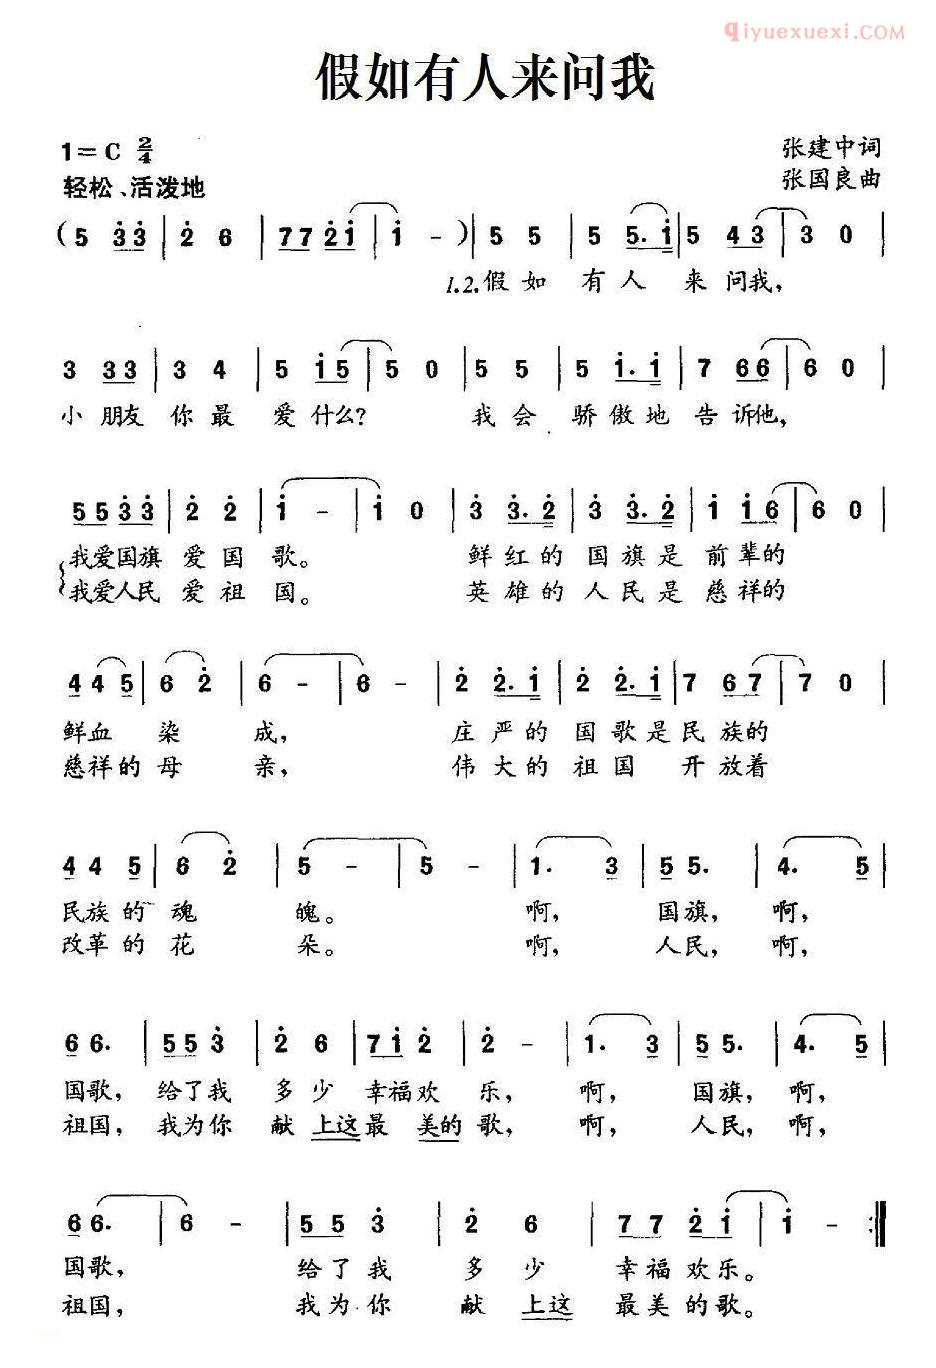 qiyuexuexi.COM
假如有人来问我
1=C 2/4
张建中词
轻松、活泼地
张国良曲
(5 33 | 2 6 | 77 21 | 1 - ) | 5 5 | 5 5. 1 | 5 43 | 3 0 |
1.2.假如 有人 来 问我,
3 33 | 3 4 | 5 15 | 5 0 | 5 5 | 5 1. 1 | 7 66 | 6 0 |
小 朋友 你最 爱什么? 我会 骄傲地 告诉他,
5533 | 2 2 | 1 - | 1 0 | 3 3. 2 | 3 3. 2 | 1 16 | 6 0 |
我爱国旗 爱国 歌。 鲜红的 国旗是 前辈的
我爱人民 爱祖 国。 英雄的 人民是 慈祥的
4 4 5 | 6 2 | 6 - | 6 - | 2 2. 1 | 2 2. 1 | 7 67 | 7 0 |
鲜血 染 成, 庄严的 国歌是 民族的
慈祥的 母 亲, 伟大的 祖国 开放着
4 4 5 | 6 2 | 5 - | 5 - | 1. 3 | 5 5. | 4. 5 |
民族的 魂 魄。 啊, 国旗, 啊,
改革的 花 朵。 啊, 人民, 啊,
6 6. | 5 5 3 | 2 6 | 7 1 2 | 2 - | 1. 3 | 5 5. | 4. 5 |
国歌, 给了我 多少 幸福欢 乐, 啊, 国旗, 啊,
祖国, 我为你 献上这最 美的歌, 啊, 人民, 啊,
6 6. | 6 - | 5 5 3 | 2 6 | 7 7 2 1 | 1 - :||
国歌, 给了我 多少 幸福欢乐。
祖国, 我为你 献上这 最美的歌。